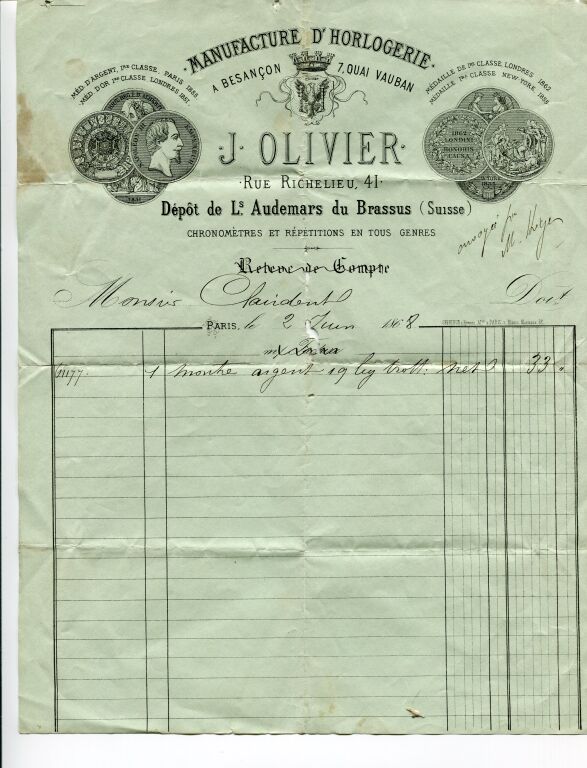 MANUFACTURE D'HORLOGERIE
A BESANÇON 7, QUAI VAUBAN
MÉD. D'ARGENT, 1RE CLASSE, PARIS 1855
MÉD. D'OR 1RE CLASSE LONDRES 1861.
MÉDAILLE DE 1RE CLASSE, LONDRES 1862
MÉDAILLE 1RE CLASSE NEW-YORK 1853
1862
LONDINI
HONORIS
CAUSA
J. OLIVIER
RUE RICHELIEU, 41
Dépôt de Ls Audemars du Brassus (Suisse)
CHRONOMÈTRES ET RÉPÉTITIONS EN TOUS GENRES
envoyée par
M.
Relevé de Compte
Monsieur Doit
PARIS, le 2 Juin 1868
1 montre argent 19 lig trott. net 33 "